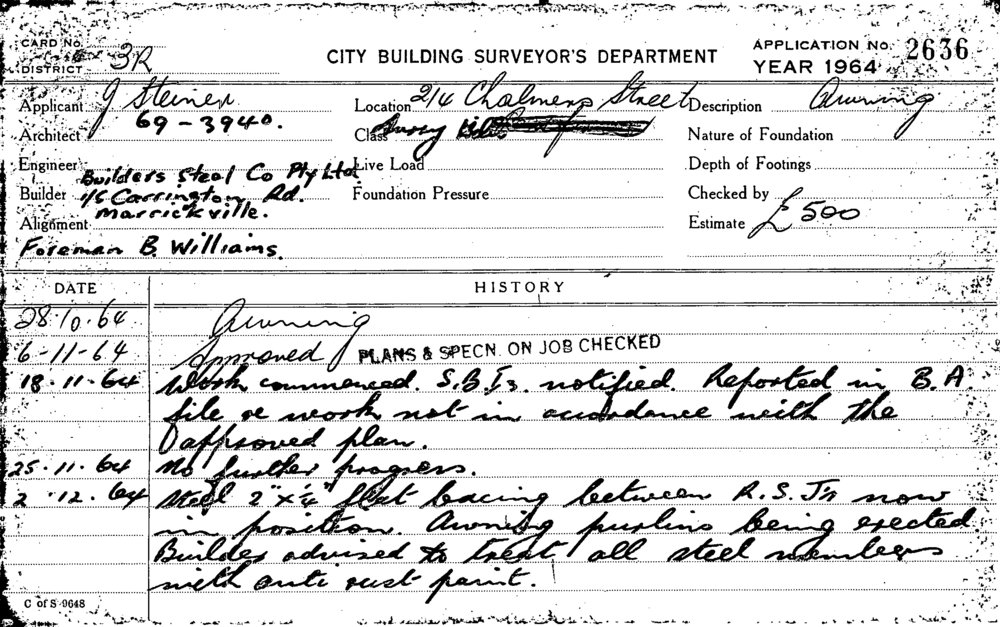 CARD No.
DISTRICT 3R
CITY BUILDING SURVEYOR'S DEPARTMENT
APPLICATION No. 2636
YEAR 1964
Applicant J Steiner
69-3940.
Location 214 Chalmers Street
Description Awning
Architect
Class
Nature of Foundation
Engineer
Builders Steel Co Pty Ltd
Live Load
Depth of Footings
Builder 1/5 Carrington Rd.
Marrickville.
Foundation Pressure
Checked by
Alignment
Estimate £500
Foreman B. Williams.
DATE HISTORY
28.10.64 Awning
6-11-64 Approved PLANS & SPECN. ON JOB CHECKED
18.11.64 Work commenced. S.B.I's. notified. Reported in B.A
file re work not in accordance with the
approved plan.
25.11.64 No further progress.
2.12.64 Steel 2" x ¼" flat bracing between R.S.J's now
in position. Awning purlins being erected.
Builder advised to treat all steel members
with anti rust paint.
C of S 9648